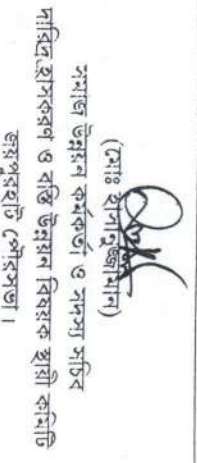 (মোঃ হাসানুজ্জামান)
সমাজ উন্নয়ন কর্মকর্তা ও সদস্য সচিব
দারিদ্র্য হ্রাসকরণ ও বস্তি উন্নয়ন বিষয়ক স্থায়ী কমিটি
জয়পুরহাট পৌরসভা।